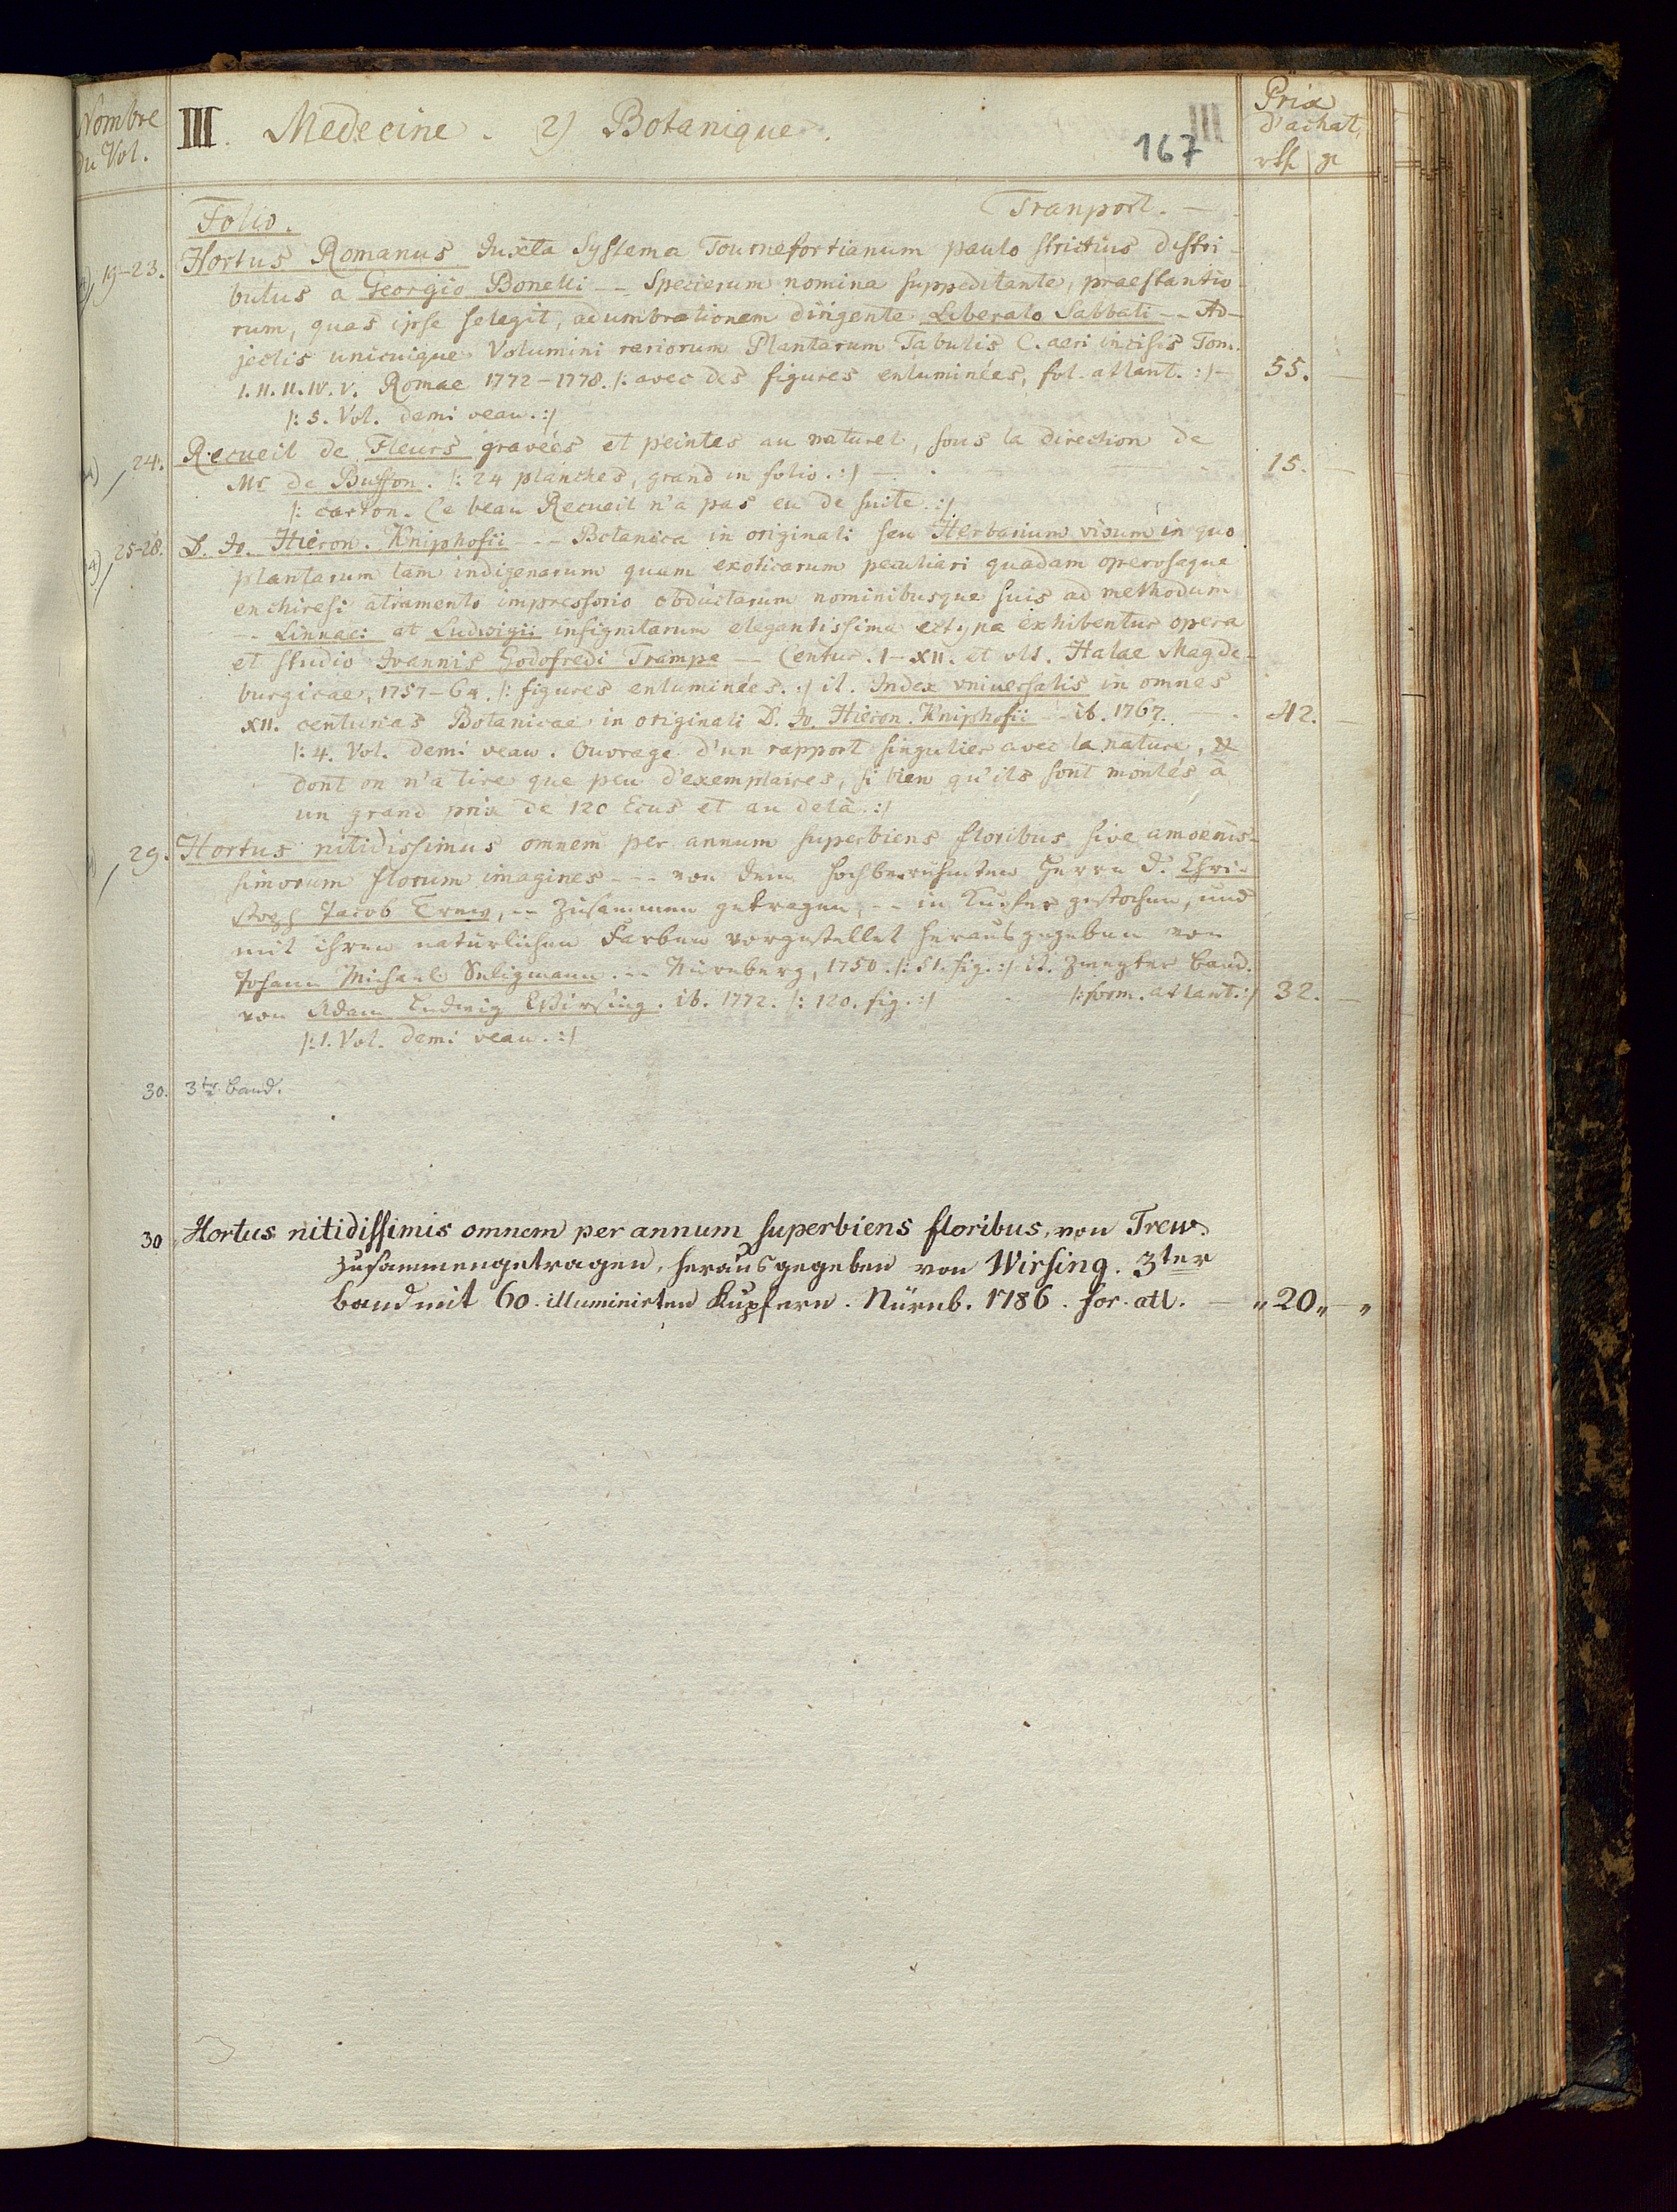 Nombre
du Vol.
III. Medecine. 2) Botanique.
167
III
Prix
d'achat
rthl gr
Folio.
Tranport. —
19-23. Hortus Romanus Juxta Systema Tournefortianum paulo strictius distri-
butus a Georgio Bonelli -- Specierum nomina suppeditante, praestantio-
rum, quas ipse selegit, adumbrationem dirigente Liberato Sabbati -- Ad-
jectis unicuique Volumini rariorum Plantarum Tabulis C. aeri incisis Tom.
I. II. II. IV. V. Romae 1772-1778. /: avec des figures enluminées, fol. atlant. :/ — 55. —
/: 5. Vol. demi veau. :/
24. Recueil de Fleurs gravées et peintes au naturel, sous la direction de
Mr de Buffon. /: 24 planches, grand in folio. :/ — 15. —
/: carton. Ce beau Recueil n'a pas eu de suite. :/
25-28. D. Jo. Hieron. Kniphofii -- Botanica in originali seu Herbarium vivum in quo
plantarum tam indigenarum quam exoticarum peculiari quadam operosaque
enchiresi atramento impressorio obductarum nominibusque suis ad methodum
-- Linnaei et Ludwigii insignitarum elegantissima ectypa exhibentur opera
et studio Ioannis Godofredi Trampe -- Centur. I-XII. et ult. Halae Magde-
burgicae, 1757-64. /: figures enluminées. :/ it. Index vniuersalis in omnes
XII. centurias Botanicae in originali D. Jo. Hieron. Kniphofii -- ib. 1767. — 42. —
/: 4. Vol. demi veau. Ouvrage d'un rapport singulier avec la nature, &
dont on n'a tire que peu d'exemplaires, si bien qu'ils sont montés à
un grand prix de 120 Ecus et au delà. :/
29. Hortus nitidissimus omnem per annum superbiens floribus sive amoenis-
simorum florum imagines --- von dem hochberühmten Herrn D. Chri-
stoph Jacob Trew, -- zusammen getragen, -- in Kupfer gestochen, und
mit ihren natürlichen Farben vorgestellet herausgegeben von
Johann Michael Seligmann. -- Nürnberg, 1750. /: 51. fig. :/ it. Zweyter Band.
von Adam Ludwig Wirsing. ib. 1772. /: 120. fig. :/ /: form. atlant. :/ 32. —
/: 1. Vol. demi veau. :/
30. 3ter Band.
30 Hortus nitidissimis omnem per annum superbiens floribus, von Trew
zusammengetragen, herausgegeben von Wirsing. 3ter
Band mit 60. illuministen Kupfern. Nürnb. 1786. for. atl. — " 20 " — "